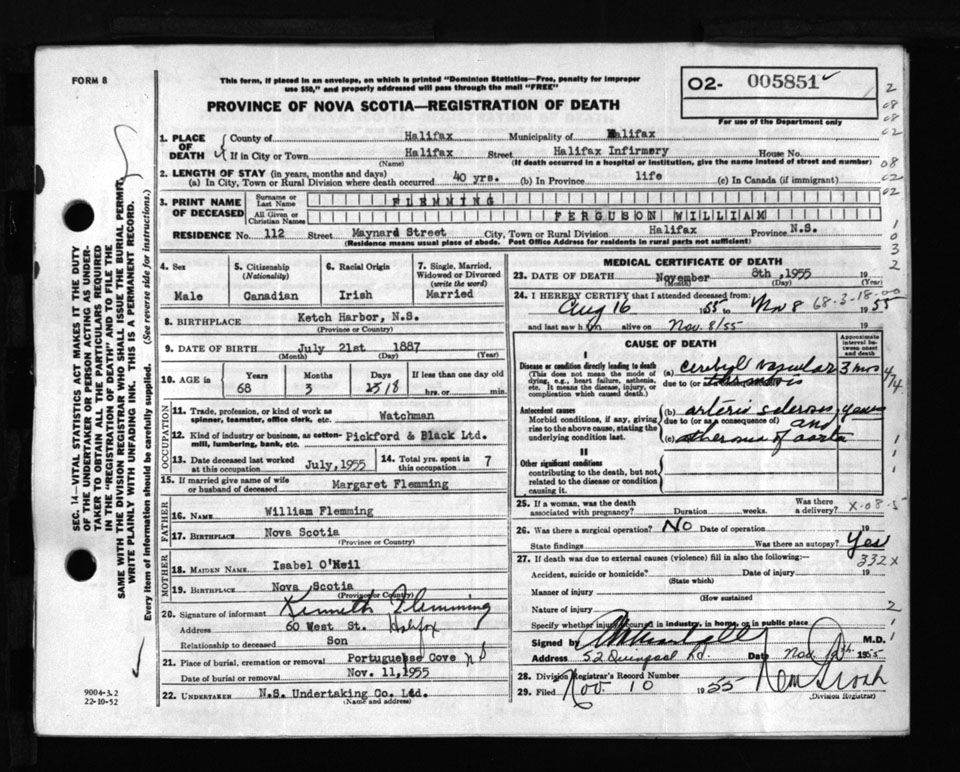 FORM 8
This form, if placed in an envelope, on which is printed "Dominion Statistics—Free, penalty for improper
use $50," and properly addressed will pass through the mail "FREE"
PROVINCE OF NOVA SCOTIA—REGISTRATION OF DEATH
O2- 005851
For use of the Department only
2
08
08
02
08
02
02
1
0
3
2
SEC. 14—VITAL STATISTICS ACT MAKES IT THE DUTY
OF THE UNDERTAKER OR PERSON ACTING AS UNDER-
TAKER TO OBTAIN ALL THE PARTICULARS REQUIRED
IN THE "REGISTRATION OF DEATH" AND TO FILE THE
SAME WITH THE DIVISION REGISTRAR WHO SHALL ISSUE THE BURIAL PERMIT.
WRITE PLAINLY WITH UNFADING INK. THIS IS A PERMANENT RECORD.
Every item of information should be carefully supplied. (See reverse side for instructions.)
1. PLACE OF DEATH
County of Halifax Municipality of Halifax
If in City or Town Halifax Street Halifax Infirmery House No.
(Name) (If death occurred in a hospital or institution, give the name instead of street and number)
2. LENGTH OF STAY (in years, months and days)
(a) In City, Town or Rural Division where death occurred 40 yrs. (b) In Province life (c) In Canada (if immigrant)
3. PRINT NAME OF DECEASED
Surname or Last Name FLEMMING
All Given or Christian Names FERGUSON WILLIAM
RESIDENCE No. 112 Street Maynard Street City, Town or Rural Division Halifax Province N.S.
(Residence means usual place of abode. Post Office Address for residents in rural parts not sufficient)
4. Sex
Male
5. Citizenship (Nationality)
Canadian
6. Racial Origin
Irish
7. Single, Married, Widowed or Divorced (write the word)
Married
8. BIRTHPLACE Ketch Harbor, N.S.
(Province or Country)
9. DATE OF BIRTH July 21st 1887
(Month) (Day) (Year)
10. AGE in
Years Months Days If less than one day old
68 3 18 hrs. or min.
OCCUPATION
11. Trade, profession, or kind of work as spinner, teamster, office clerk, etc. Watchman
12. Kind of industry or business, as cotton-mill, lumbering, bank, etc. Pickford & Black Ltd.
13. Date deceased last worked at this occupation July, 1955
14. Total yrs. spent in this occupation 7
15. If married give name of wife or husband of deceased Margaret Flemming
FATHER
16. NAME William Flemming
17. BIRTHPLACE Nova Scotia
(Province or Country)
MOTHER
18. MAIDEN NAME Isabel O'Neil
19. BIRTHPLACE Nova Scotia
(Province or Country)
20. Signature of informant Kenneth Flemming
Address 60 West St. Halifax
Relationship to deceased Son
21. Place of burial, cremation or removal Portuguese Cove N S
Date of burial or removal Nov. 11, 1955
22. UNDERTAKER N.S. Undertaking Co. Ltd.
(Name and address)
9004-3.2
22-10-52
MEDICAL CERTIFICATE OF DEATH
23. DATE OF DEATH November 8th, 1955 19
(Month) (Day) (Year)
24. I HEREBY CERTIFY that I attended deceased from:
68-3-18-00
Aug 16 1955 to Nov 8 1955
and last saw him alive on Nov. 8/55
CAUSE OF DEATH
Approximate interval between onset and death
I
Disease or condition directly leading to death
(This does not mean the mode of dying, e.g., heart failure, asthenia, etc. It means the disease, injury, or complication which caused death.)
(a) cerebral vascular 3 mos
due to (or as thrombosis
4/4
Antecedent causes
Morbid conditions, if any, giving rise to the above cause, stating the underlying condition last.
(b) arterio sclerosis years
due to (or as a consequence of) and
(c) atheroma of aorta
II
Other significant conditions
contributing to the death, but not related to the disease or condition causing it.
1
1
25. If a woman, was the death associated with pregnancy? Duration weeks. Was there a delivery?
X-08-5
26. Was there a surgical operation? No Date of operation 19
State findings Was there an autopsy? Yes
27. If death was due to external causes (violence) fill in also the following:—
332X
Accident, suicide or homicide? Date of injury 19
(State which)
Manner of injury
(How sustained
Nature of injury
2
Specify whether injury occurred in industry, in home, or in public place
1
Signed by M.D.
Address 52 Quinpool Rd. Date Nov. 1955
28. Division Registrar's Record Number
29. Filed Nov. 10 1955
(Division Registrar)